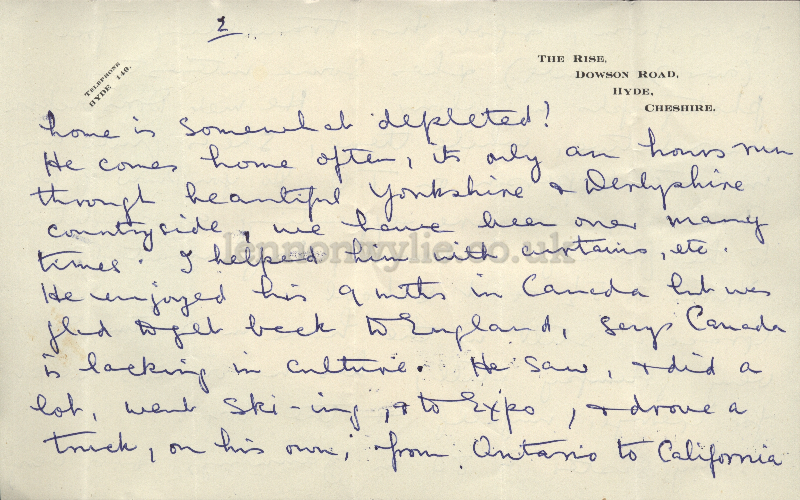 2
TELEPHONE
HYDE 140.
THE RISE,
DOWSON ROAD,
HYDE,
CHESHIRE.
home is somewhat depleted!
He comes home often, its only an hours run
through beautiful Yorkshire & Derbyshire
countryside, we have been over many
times. I helped him with curtains, etc.
lennonwylie.co.uk
He enjoyed his 9 mths in Canada but was
glad to get back to England, says Canada
is lacking in culture. He saw, & did a
lot, went Ski-ing, & to Expo, & drove a
truck, on his own, from Ontario to California